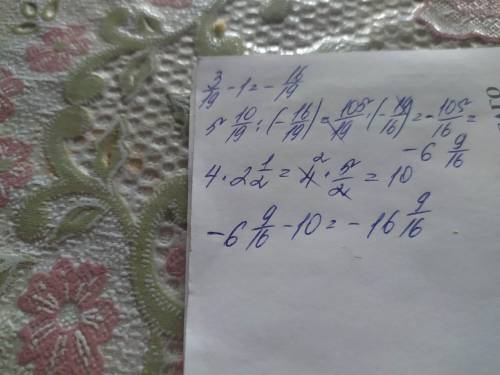 3/19 - 1 = - 16/19
5 10/19 : (- 16/19) = 105/19 · (- 19/16) = - 105/16 =
- 6 9/16
4 · 2 1/2 = 4 2 · 5/2 = 10
- 6 9/16 - 10 = - 16 9/16